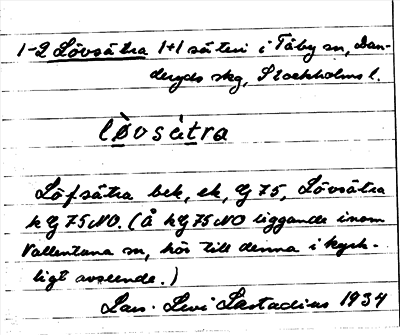 1-2 Lövsätra 1+1 säteri i Täby sn, Dan-
deryds skg, Stockholms l.
lövsätra
Löfsätra bek, ek, G 75, Lövsätra
k G 75 NO. (Å kG 75 NO liggande inom
Vallentuna sn, hör till denna i kyrk-
ligt avseende.)
Lars-Levi Læstadius 1934